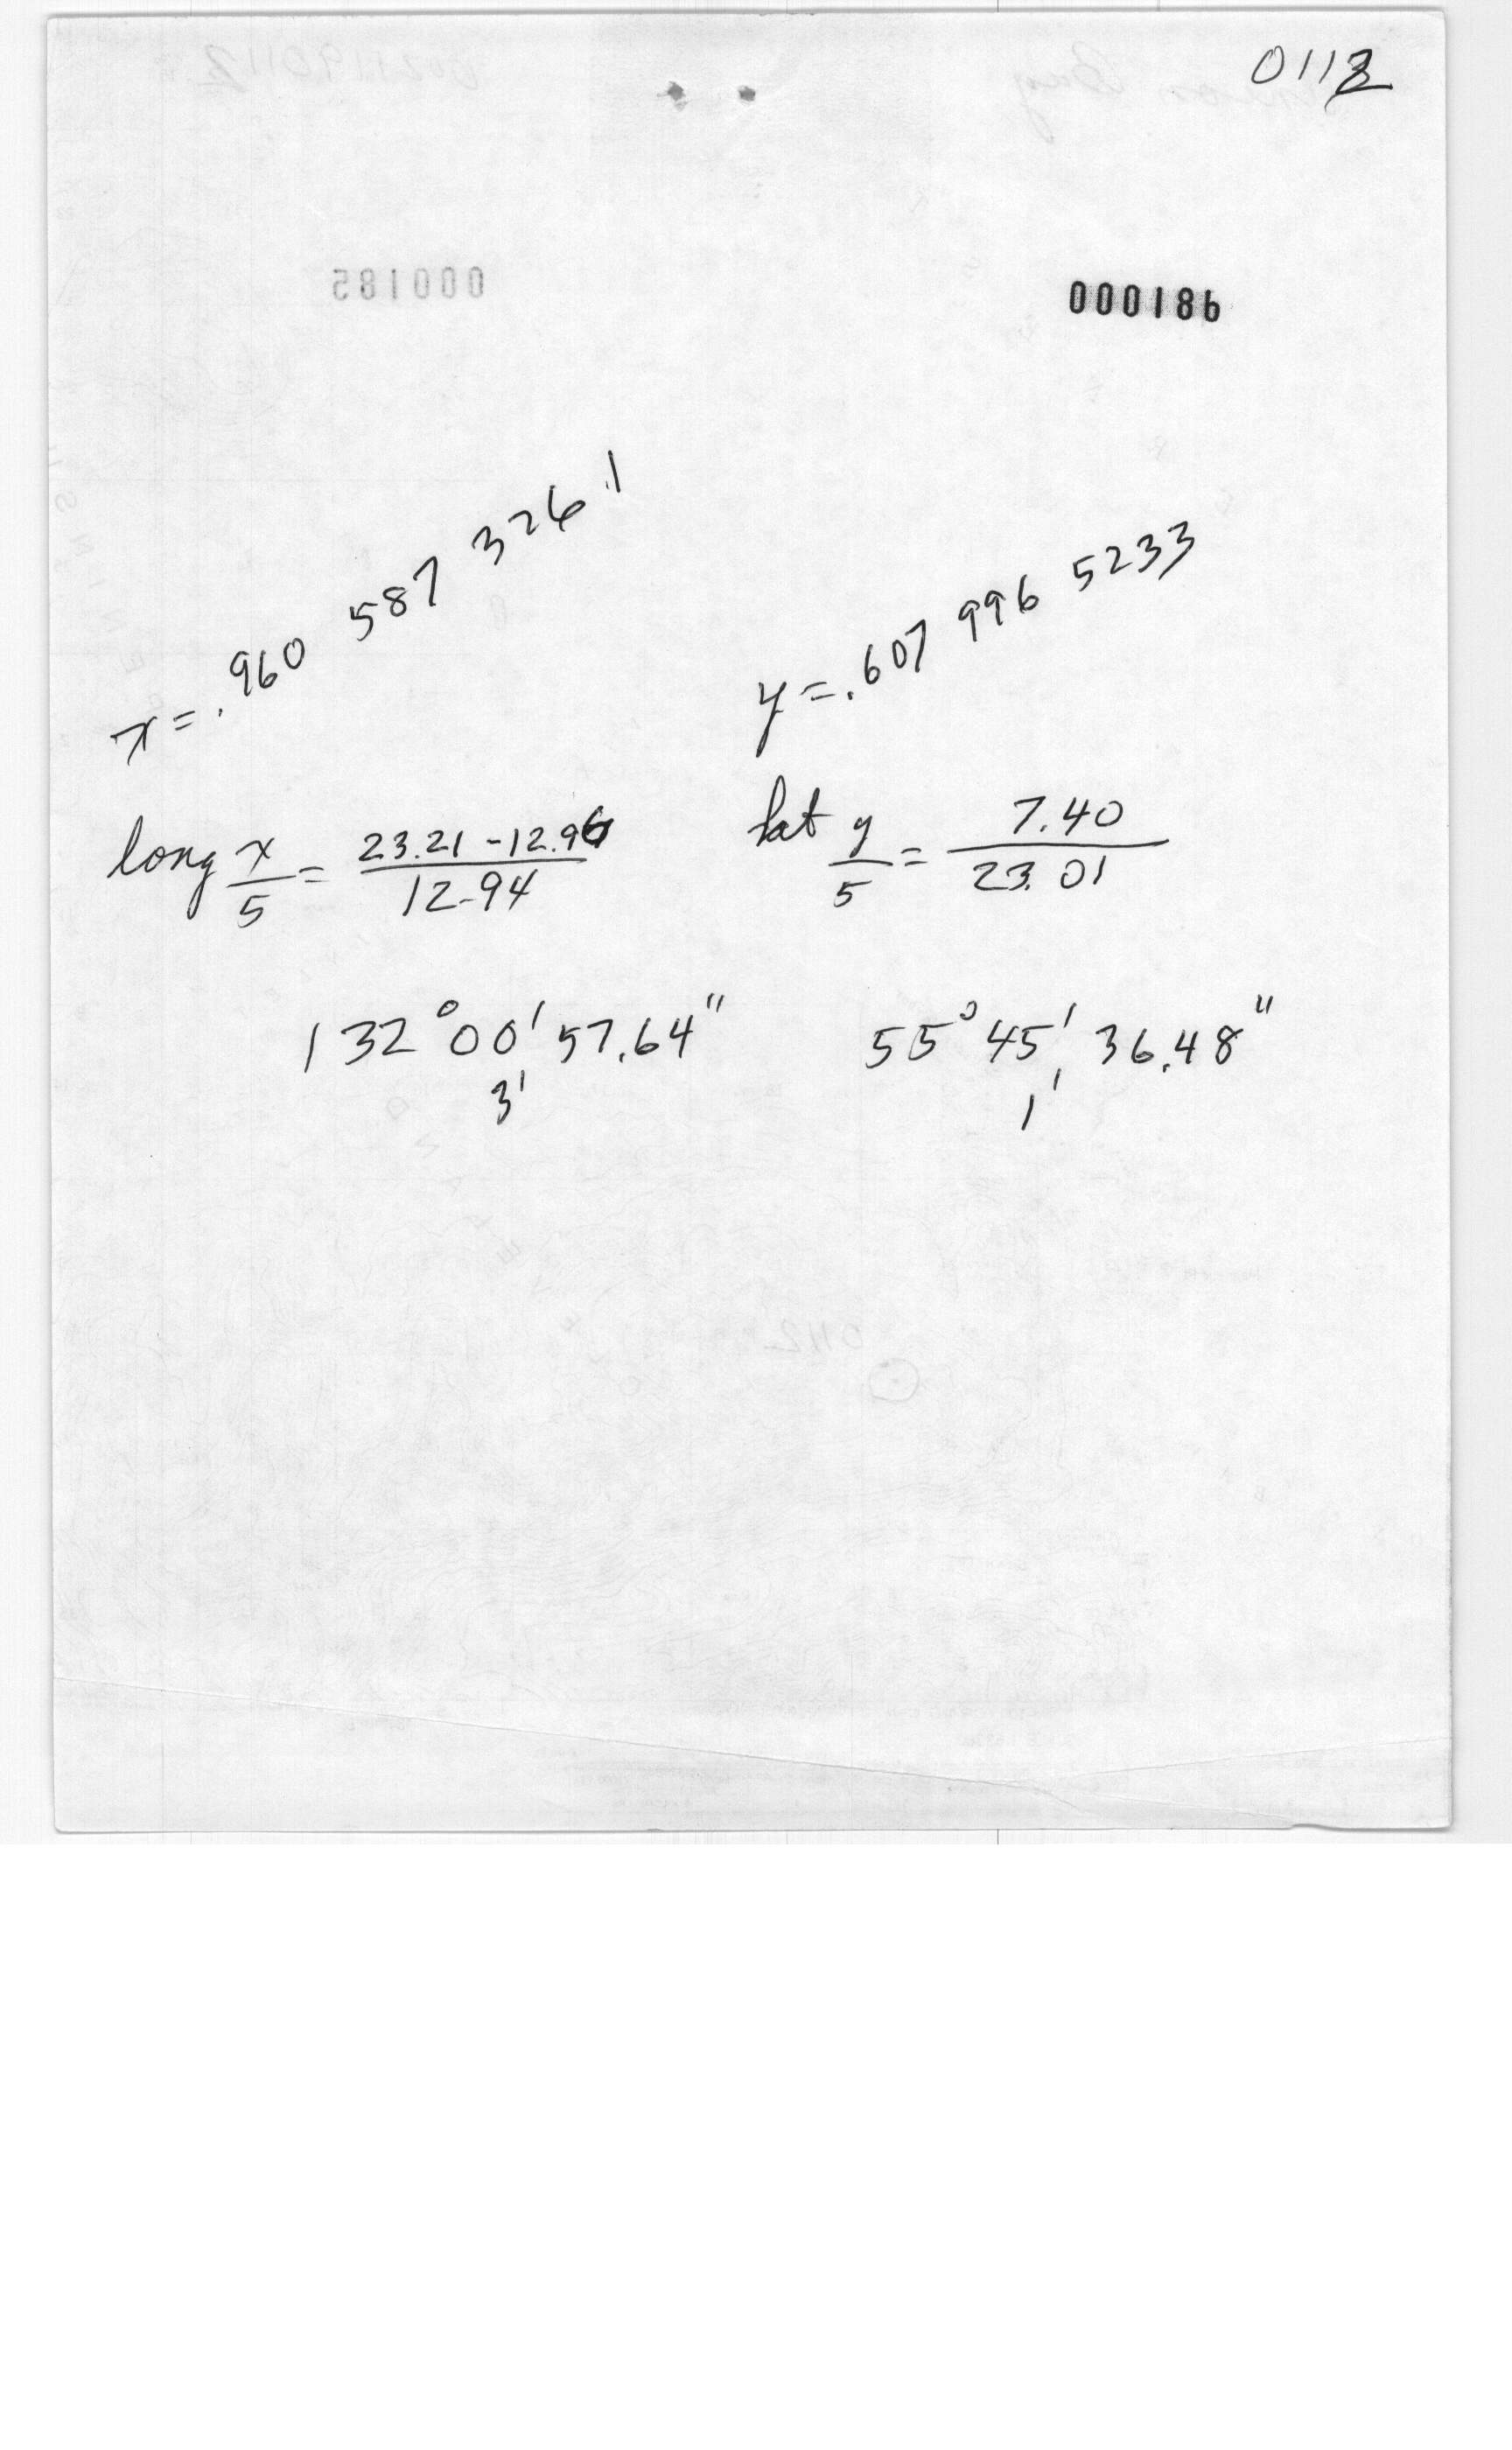 0112
000186
x = .960 587 326 1
y = .607 996 5233
long x/5 = 23.21 - 12.96/12.94
lat y/5 = 7.40/23.01
132°00'57.64" 55°45' 36.48"
3' 1'